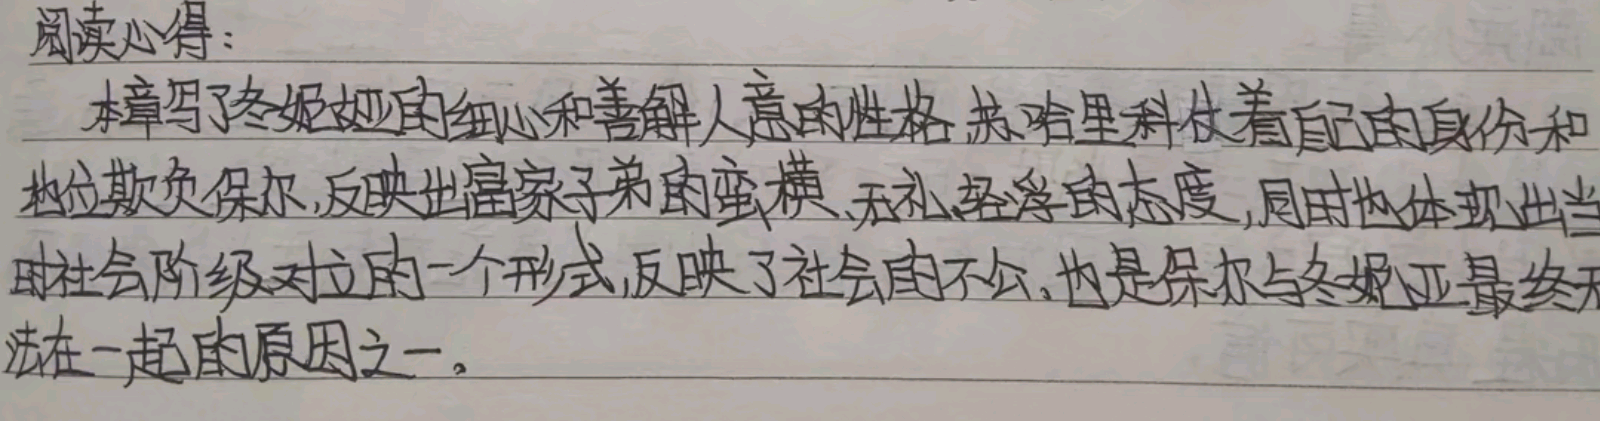 阅读心得：
本章写了冬妮娅的细心和善解人意的性格,苏哈里科仗着自己的身份和
地位欺负保尔,反映出富家子弟的蛮横、无礼、轻浮的态度,同时也体现出当
时社会阶级对立的一个形式,反映了社会的不公、也是保尔与冬妮亚最终无
法在一起的原因之一。